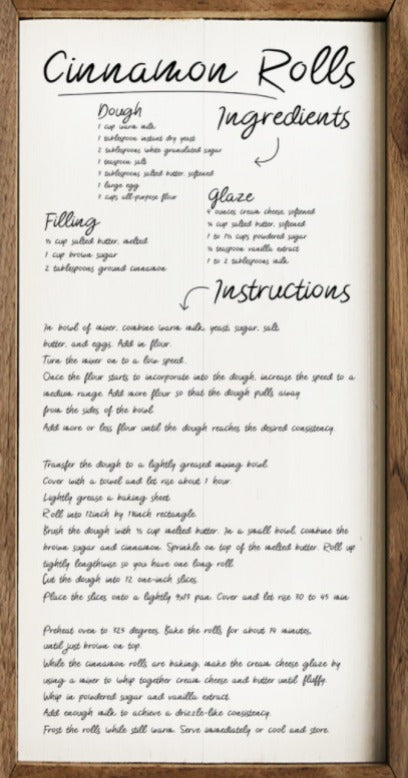 Cinnamon Rolls
Dough
1 cup warm milk
1 tablespoon instant dry yeast
2 tablespoons white granulated sugar
1 teaspoon salt
3 tablespoons salted butter, softened
1 large egg
3 cups all-purpose flour
Ingredients
Filling
½ cup salted butter, melted
1 cup brown sugar
2 tablespoons ground cinnamon
Glaze
4 ounces cream cheese, softened
¼ cup salted butter, softened
1 to 1½ cups powdered sugar
½ teaspoon vanilla extract
1 to 2 tablespoons milk
Instructions
In bowl of mixer, combine warm milk, yeast, sugar, salt,
butter, and eggs. Add in flour.
Turn the mixer on to a low speed.
Once the flour starts to incorporate into the dough, increase the speed to a
medium range. Add more flour so that the dough pulls away
from the sides of the bowl.
Add more or less flour until the dough reaches the desired consistency.
Transfer the dough to a lightly greased mixing bowl.
Cover with a towel and let rise about 1 hour.
Lightly grease a baking sheet.
Roll into 12inch by 18inch rectangle.
Brush the dough with ½ cup melted butter. In a small bowl, combine the
brown sugar and cinnamon. Sprinkle on top of the melted butter. Roll up
tightly lengthwise so you have one long roll.
Cut the dough into 12 one-inch slices.
Place the slices onto a lightly 9x13 pan. Cover and let rise 30 to 45 min
Preheat oven to 325 degrees. Bake the rolls for about 14 minutes,
until just brown on top.
While the cinnamon rolls are baking, make the cream cheese glaze by
using a mixer to whip together cream cheese and butter until fluffy.
Whip in powdered sugar and vanilla extract.
Add enough milk to achieve a drizzle-like consistency.
Frost the rolls while still warm. Serve immediately or cool and store.